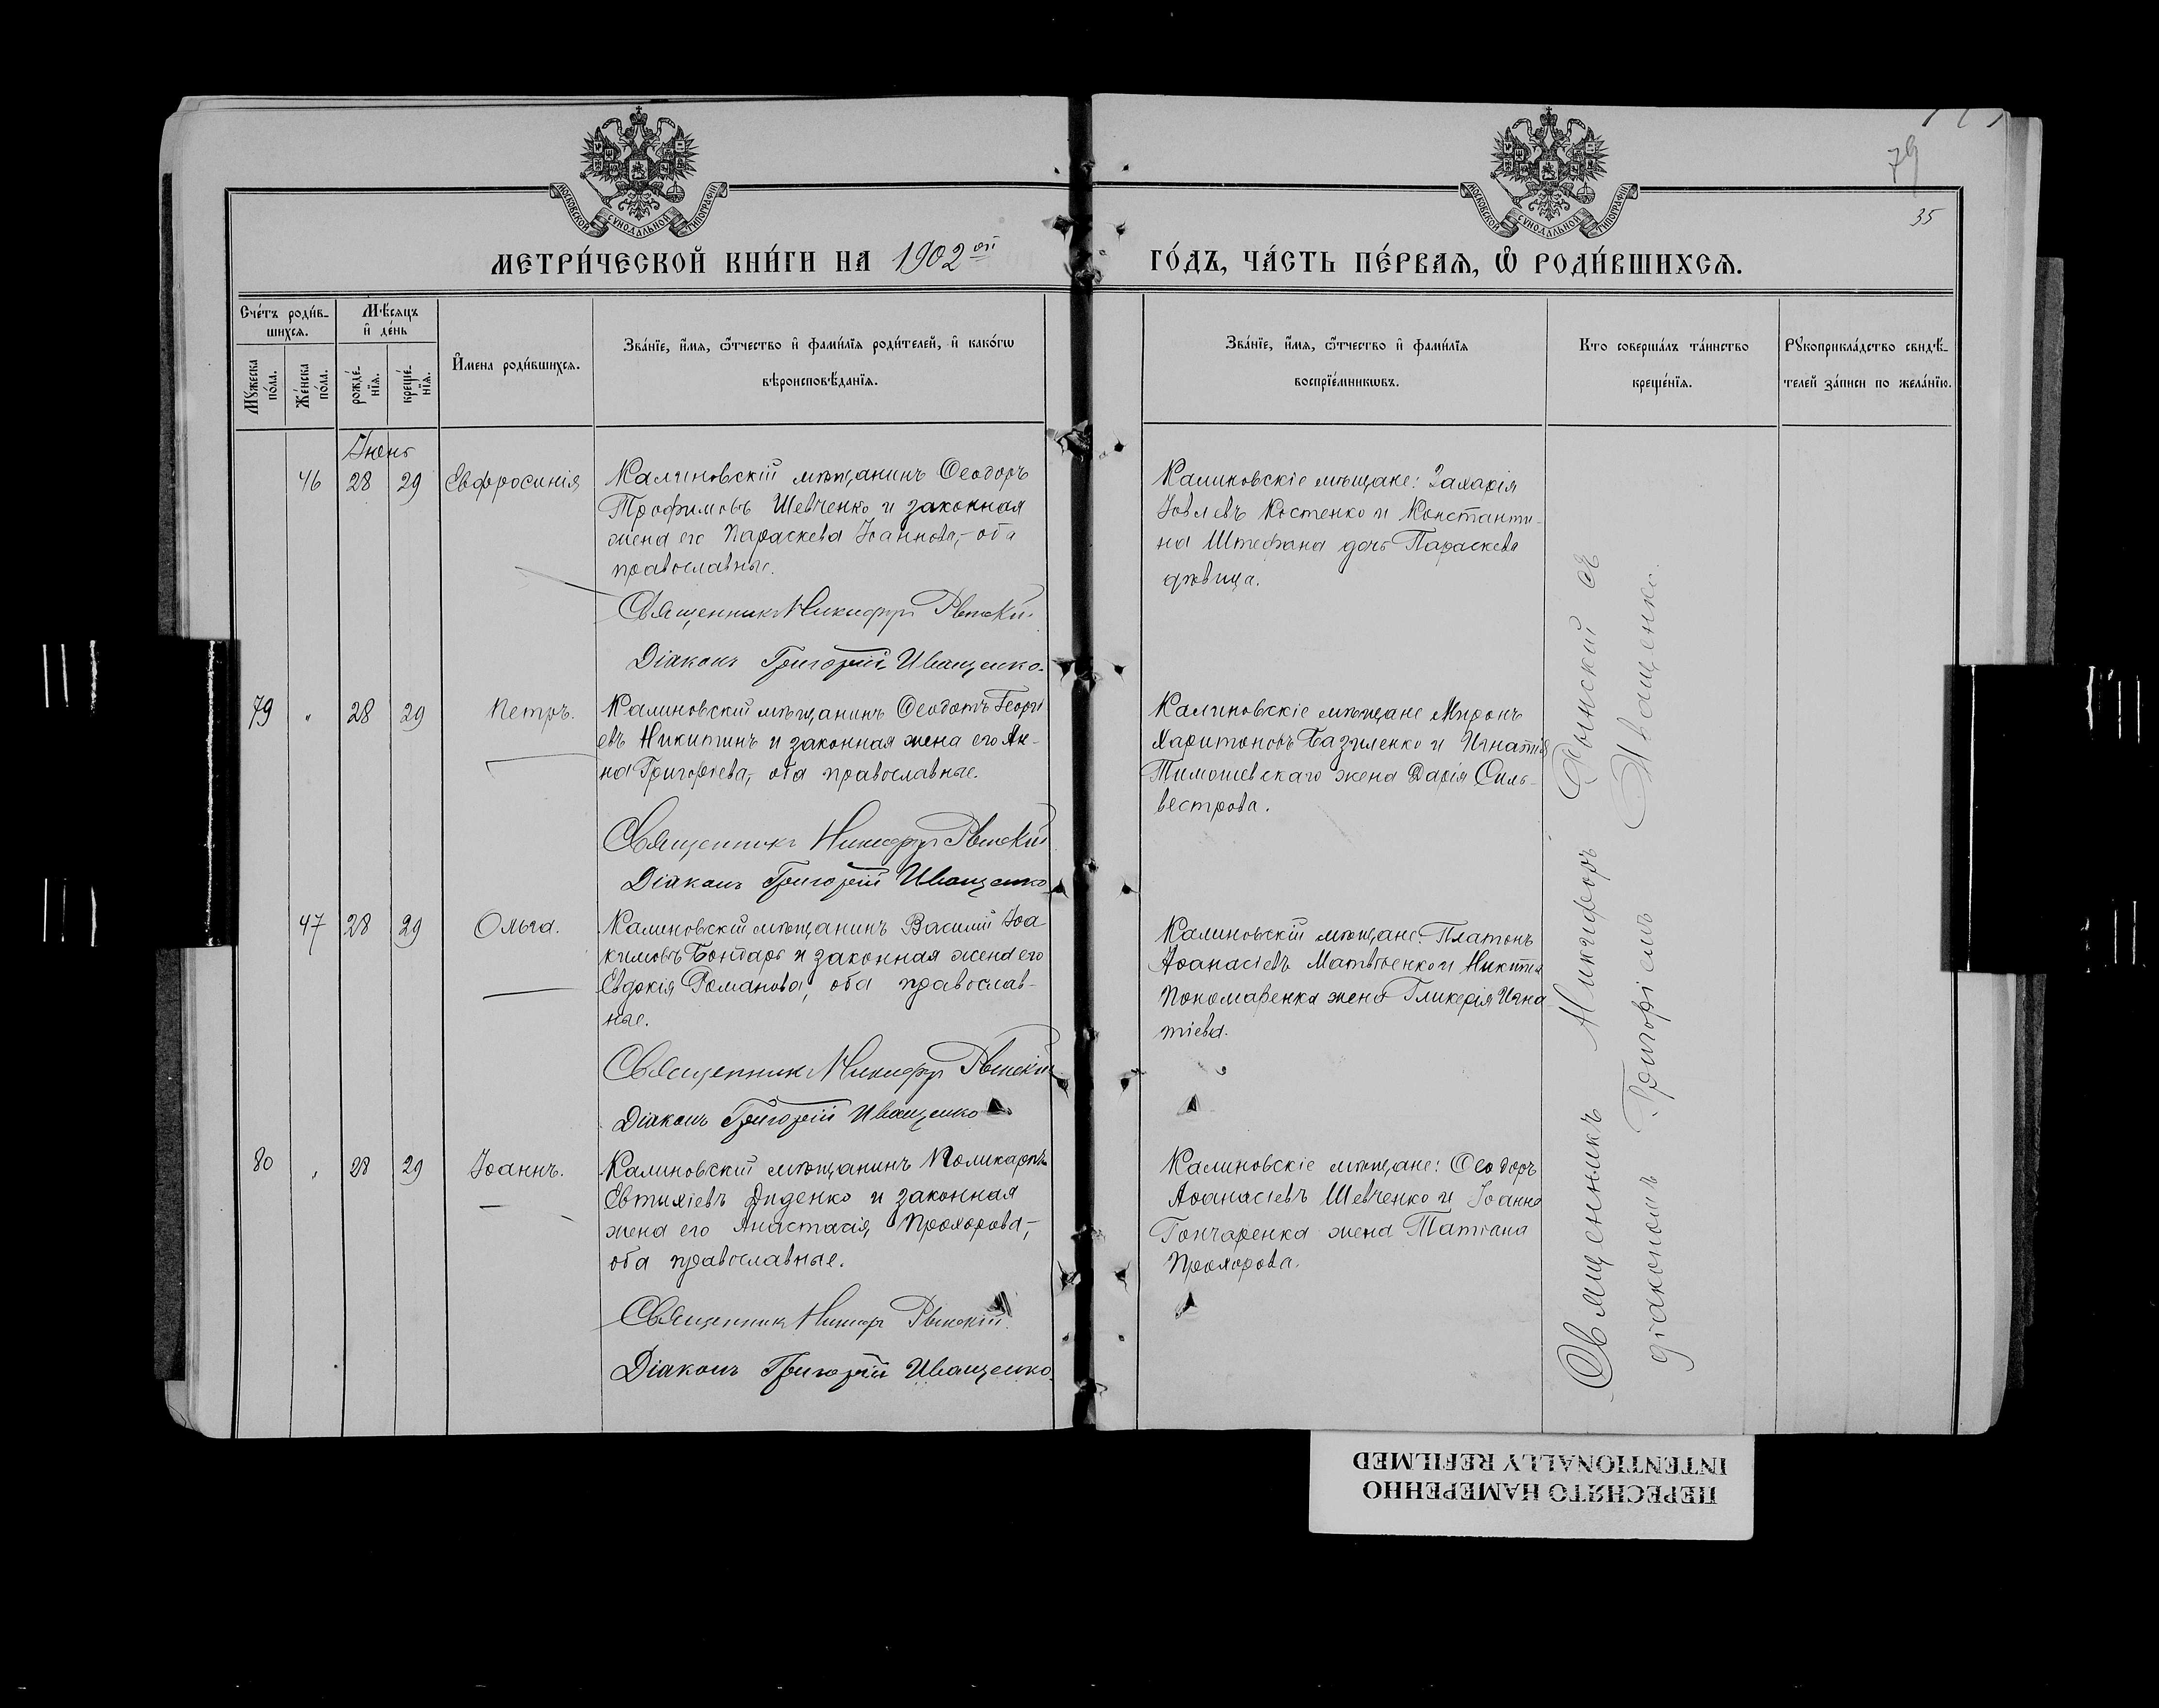 МОСКОВСКОЙ СУНОДАЛЬНОЙ ТИПОГРАФІИ
МОСКОВСКОЙ СУНОДАЛЬНОЙ ТИПОГРАФІИ
79
35
МЕТРИ́ЧЕСКОЙ КНИ́ГИ НА 1902 ой
ГО́ДЪ, ЧА́СТЬ ПЕ́РВАѦ, Ѡ РОДИ́ВШИХСѦ.
Сче́тъ роди́в-
шихсѧ.
Мꙋжеска по́ла.
Же́нска по́ла.
Мѣ́сѧцъ
и҆ де́нь
рожде́-
нїѧ.
креще́-
нїѧ.
И҆мена роди́вшихсѧ.
Зва́нїе, и҆́мѧ, ѻ҆́тчество и҆ фами́лїѧ роди́телей, и҆ како́гѡ
вѣроисповѣ́данїѧ.
Зва́нїе, и҆́мѧ, ѻ҆́тчество и҆ фами́лїѧ
воспрїе́мникѡвъ.
Кто соверша́лъ та́инство
креще́нїѧ.
Рꙋкоприкла́дство свидѣ́-
телей за́писи по жела́нїю.
Іюнь
46 28 29 Евфросинія
Калиновскій мѣщанинъ Ѳеодоръ
Трофимовъ Шевченко и законная
жена его Параскева Іоаннова,- оба
православные.
Священникъ Никифоръ Рынскій
Діаконъ Григорій Иващенко.
Калиновскіе мѣщане: Захарія
Іовлевъ Костенко и Константи-
на Штефана дочь Параскева
дѣвица.
79 " 28 29 Петръ.
Калиновскій мѣщанинъ Ѳеодотъ Георгі
евъ Никитинъ и законная жена его Ан-
на Григоріева,- оба православные.
Священникъ Никифоръ Рынскій
Діаконъ Григорій Иващенко
Калиновскіе мѣщане Миронъ
Харитоновъ Базиленко и Игнатія
Тимошевскаго жена Дарія Силь-
вестрова.
47 28 29 Ольга.
Калиновскій мѣщанинъ Василій Іоа
кимовъ Бондарь и законная жена его
Евдокія Романова, оба православ-
ные.
Священникъ Никифоръ Рынскій
Діаконъ Григорій Иващенко
Калиновскій мѣщане: Платонъ
Аѳанасіевъ Матвѣенко и Никита
Пономаренка жена Гликерія Игна
тіева.
80 " 28 29 Іоаннъ.
Калиновскій мѣщанинъ Поликарпъ
Евтихіевъ Диденко и законная
жена его Анастасія, Прохорова,-
оба православные.
Священникъ Никифоръ Рынскій
Діаконъ Григорій Иващенко.
Калиновскіе мѣщане: Ѳеодоръ
Аѳанасіевъ Шевченко и Іоанна
Гончаренка жена Татіана
Прохорова.
Священникъ Никифоръ Рынскій съ
діакономъ Григоріемъ Иващенко.
ПЕРЕСНЯТО НАМЕРЕННО
INTENTIONALLY REFILMED